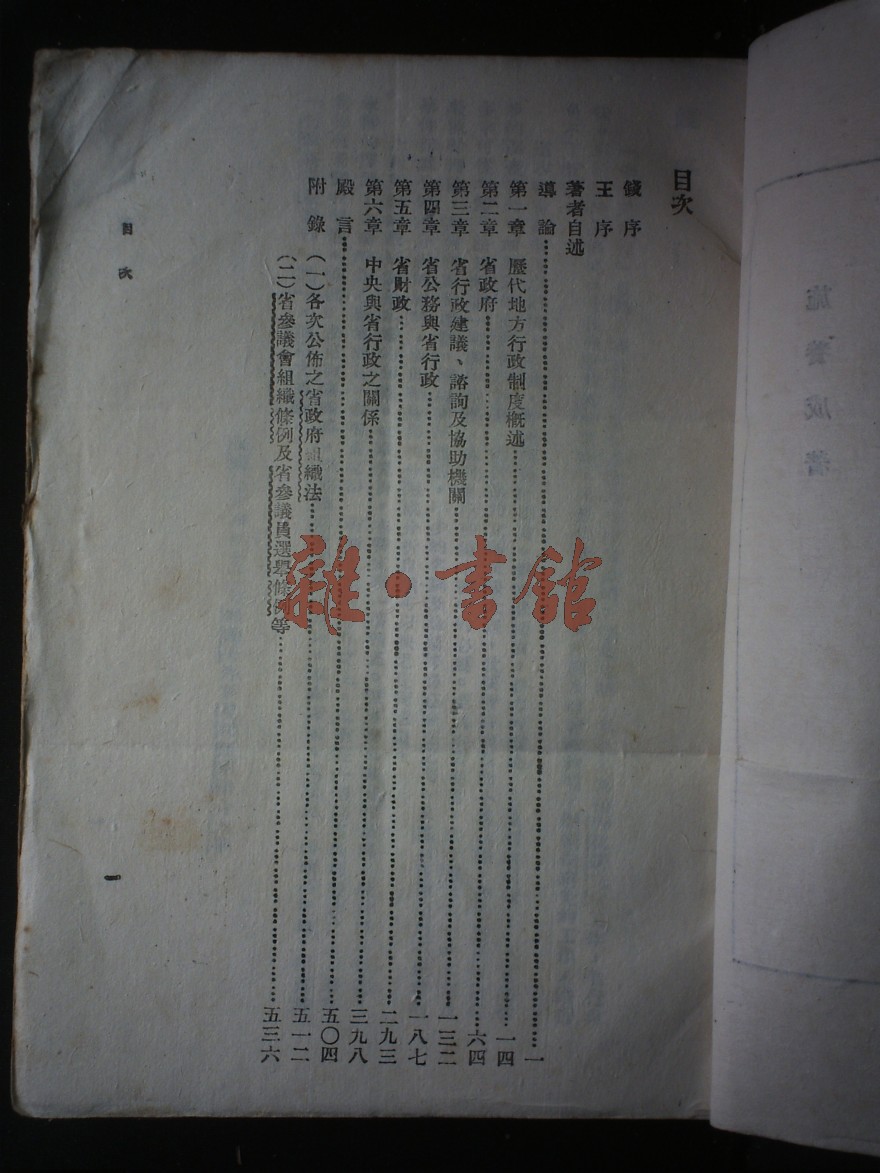 目次
錢序
王序
著者自述
導論……一
第一章 歷代地方行政制度概述……一四
第二章 省政府……六四
第三章 省行政建議、諮詢及協助機關……一三二
第四章 省公務與省行政……一八七
第五章 省財政……二九三
第六章 中央與省行政之關係……三九八
殿言……五〇四
附錄 (一)各次公佈之省政府組織法……五一二
(二)省參議會組織條例及省參議員選舉條例等……五三六
目次
一
雜·書館
施養成著